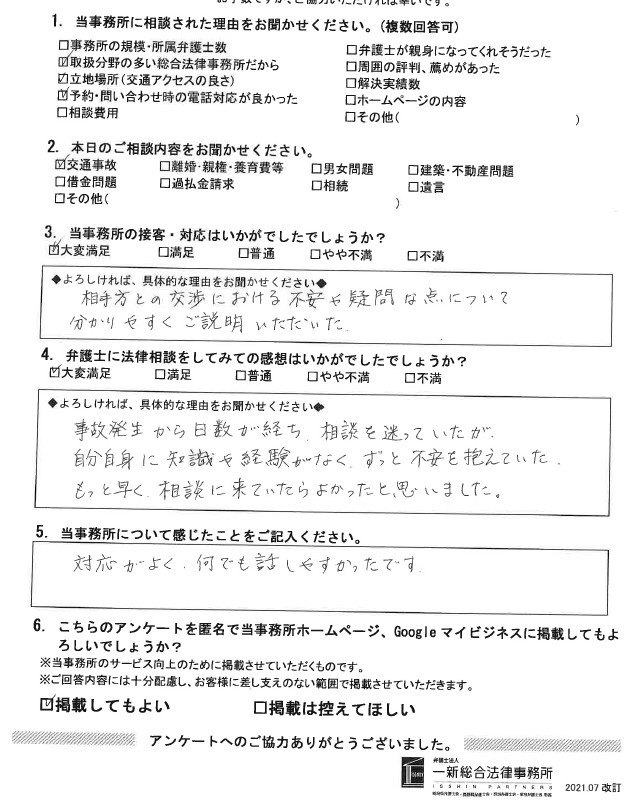 お手数ですが、ご協力いただければ幸いです。
1. 当事務所に相談された理由をお聞かせください。(複数回答可)
□事務所の規模・所属弁護士数 □弁護士が親身になってくれそうだった
☑取扱分野の多い総合法律事務所だから □周囲の評判、薦めがあった
☑立地場所(交通アクセスの良さ) □解決実績数
☑予約・問い合わせ時の電話対応が良かった □ホームページの内容
□相談費用 □その他( )
2. 本日のご相談内容をお聞かせください。
☑交通事故 □離婚・親権・養育費等 □男女問題 □建築・不動産問題
□借金問題 □過払金請求 □相続 □遺言
□その他( )
3. 当事務所の接客・対応はいかがでしたでしょうか?
☑大変満足 □満足 □普通 □やや不満 □不満
◆よろしければ、具体的な理由をお聞かせください◆
相手方との交渉における不安や疑問な点について
分かりやすくご説明いただいた.
4. 弁護士に法律相談をしてみての感想はいかがでしたでしょうか?
☑大変満足 □満足 □普通 □やや不満 □不満
◆よろしければ、具体的な理由をお聞かせください◆
事故発生から日数が経ち、相談を迷っていたが、
自分自身に知識や経験がなく、ずっと不安を抱えていた.
もっと早く、相談に来ていたらよかったと思いました。
5. 当事務所について感じたことをご記入ください。
対応がよく、何でも話しやすかったです.
6. こちらのアンケートを匿名で当事務所ホームページ、Googleマイビジネスに掲載してもよ
ろしいでしょうか?
※当事務所のサービス向上のために掲載させていただくものです。
※ご回答内容には十分配慮し、お客様に差し支えのない範囲で掲載させていただきます。
☑掲載してもよい □掲載は控えてほしい
アンケートへのご協力ありがとうございました。
弁護士法人
一新総合法律事務所
ISSHIN PARTNERS
2021.07 改訂